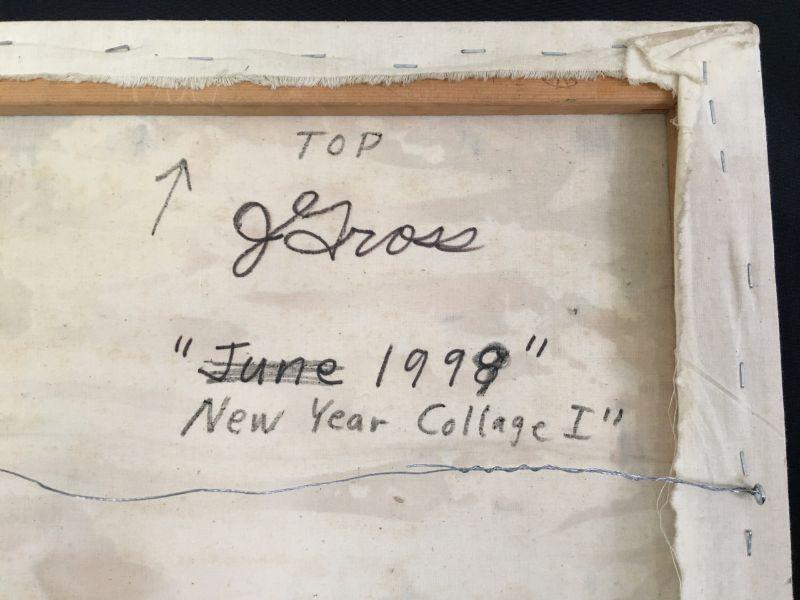 TOP
JGross
"June 1998"
New Year Collage I"